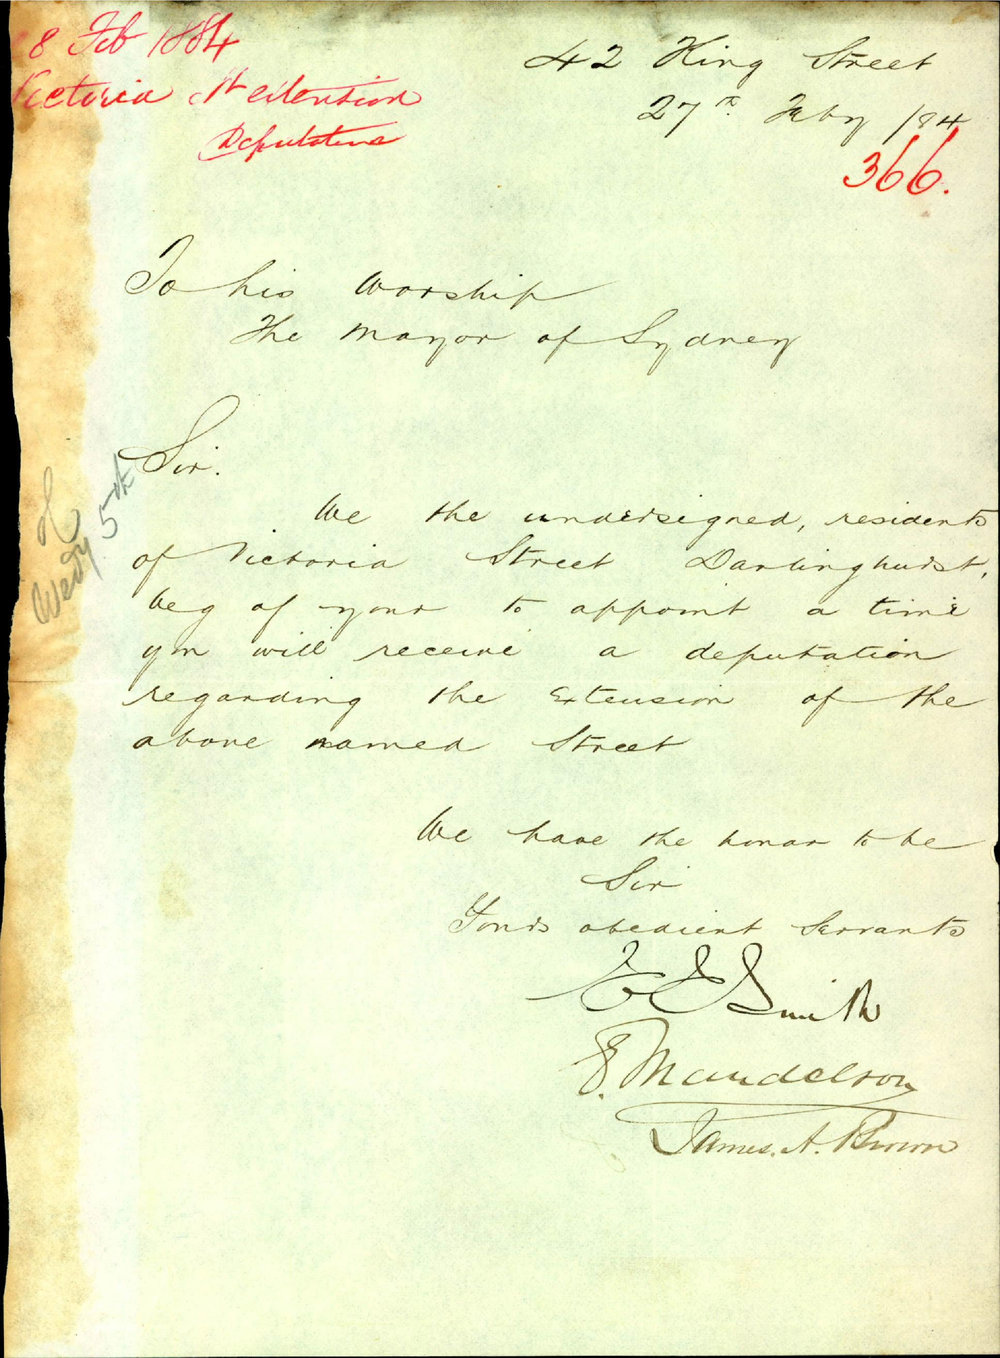 8 Feb 1884
Victoria St extension
Deputation
42 King Street
27th Feby /84
366.
To his Worship
The Mayor of Sydney
Sir.
We the undersigned, residents
of Victoria Street Darlinghurst,
beg of your to appoint a time
you will receive a deputation
regarding the Extension of the
above named Street
Wedy 5th
We have the honor to be
Sir
Yours obedient Servants
E Smith
E. Mandelson
James. A. Brown